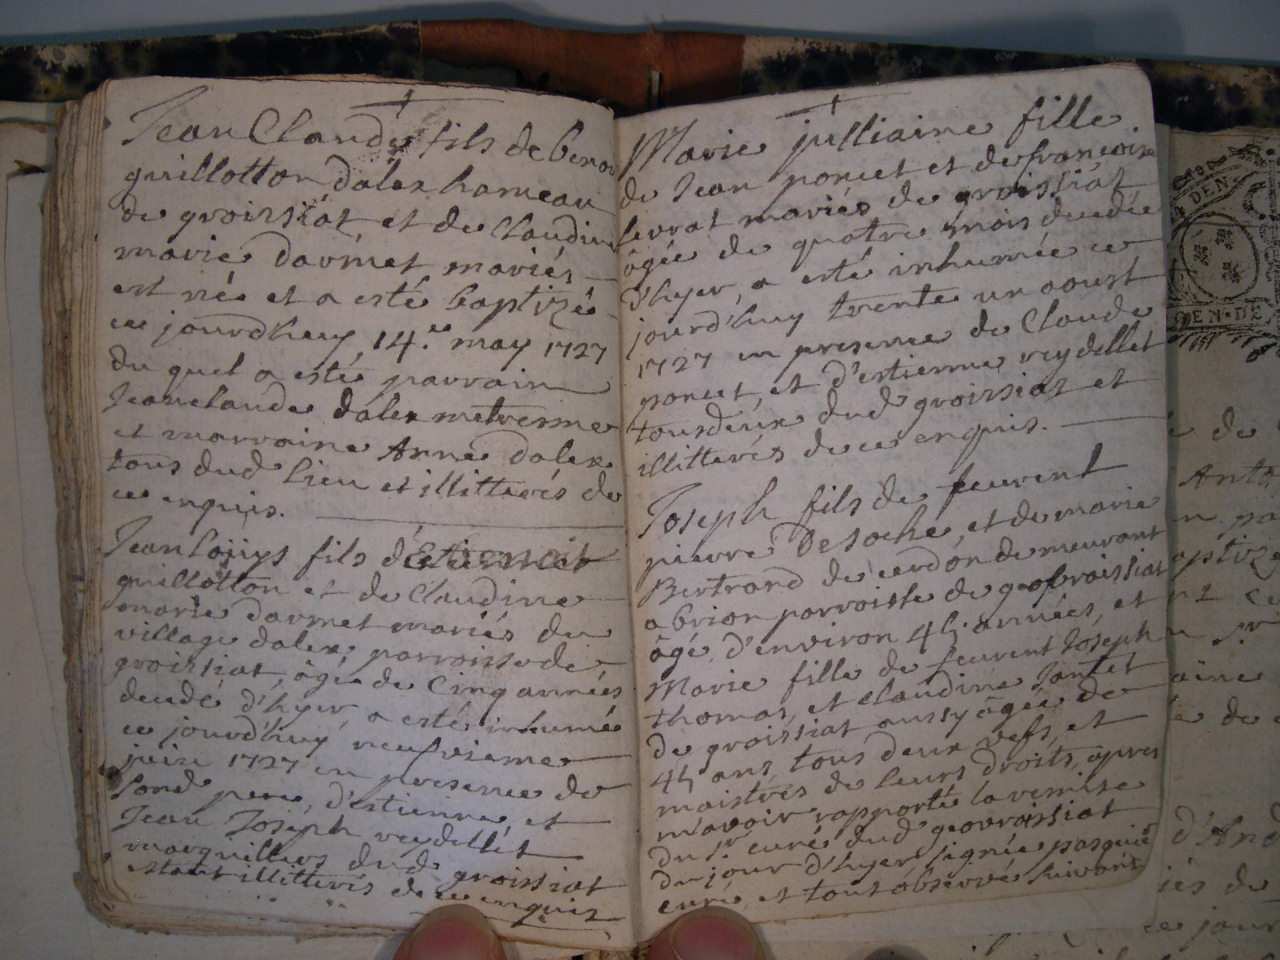 Jean Claude fils de benoi
guillotton dalex hameau
de groissiat et de Claudine
marie darmet mariés
est né et a esté baptizé
ce jourdhuy 14.e may 1727
du quel a esté parrain
Jeanclaude dalex
et marraine Anne dalex
tous dud lieu et illitterés de
ce enquis.
Jean loüys fils d'
guillotton et de Claudine
marie darmet mariés du
village dalex parroisse de
groissiat, âgé de Cinq années
decedé d'hyer, a esté inhumé
ce jourd'huy neufvieme
juin 1727 en presence de
sond pere, d'estienne et
Jean Joseph reydellet
marguilliers dud groissiat
estant illitterés de ce enquis
Marie julliaine fille
de Jean poncet et de françoise
levrat mariés de groissiat
âgée de quatre mois decedée
d'hyer, a esté inhumée ce
jourd'huy trente un aoust
1727 en presence de Claude
poncet, et d'estienne reydellet
tousdeux dud groissiat et
illitterés de ce enquis.
Joseph fils de feurent
pierre Desoche, et de marie
Bertrand de cerdon demeurant
a brion parroisse de geovraissiat
âgé d'environ 45 années, et
Marie fille de feurent Joseph
thomas, et claudine Jantet
de groissiat aussy âgée de
45 ans, tous deux vefs, et
maistres de leurs droits, apres
m'avoir rapporté la remise
du sr curé dud geovraissiat
du jour d'hyer signée pasquier
curé, et tout observé suivant